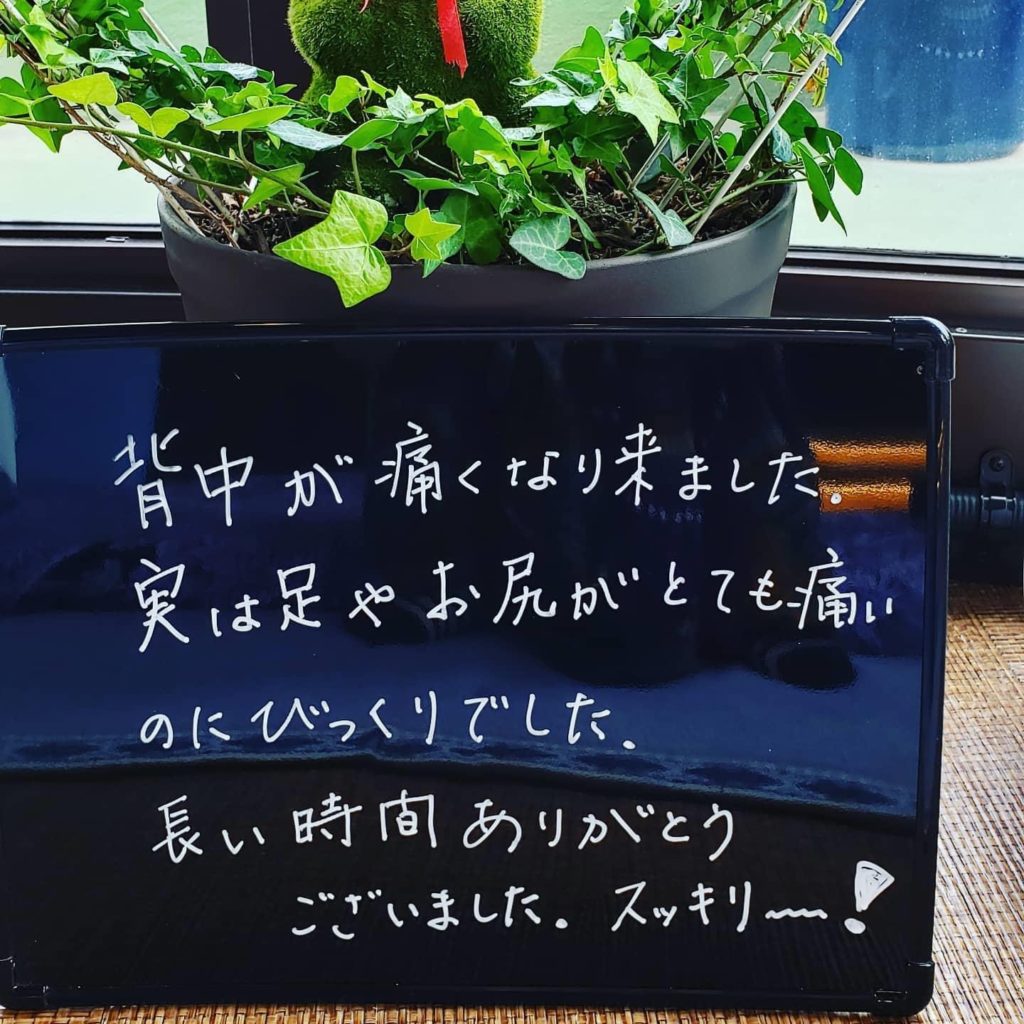 背中が痛くなり来ました。
実は足やお尻がとても痛い
のにびっくりでした。
長い時間ありがとう
ございました。スッキリ〜!